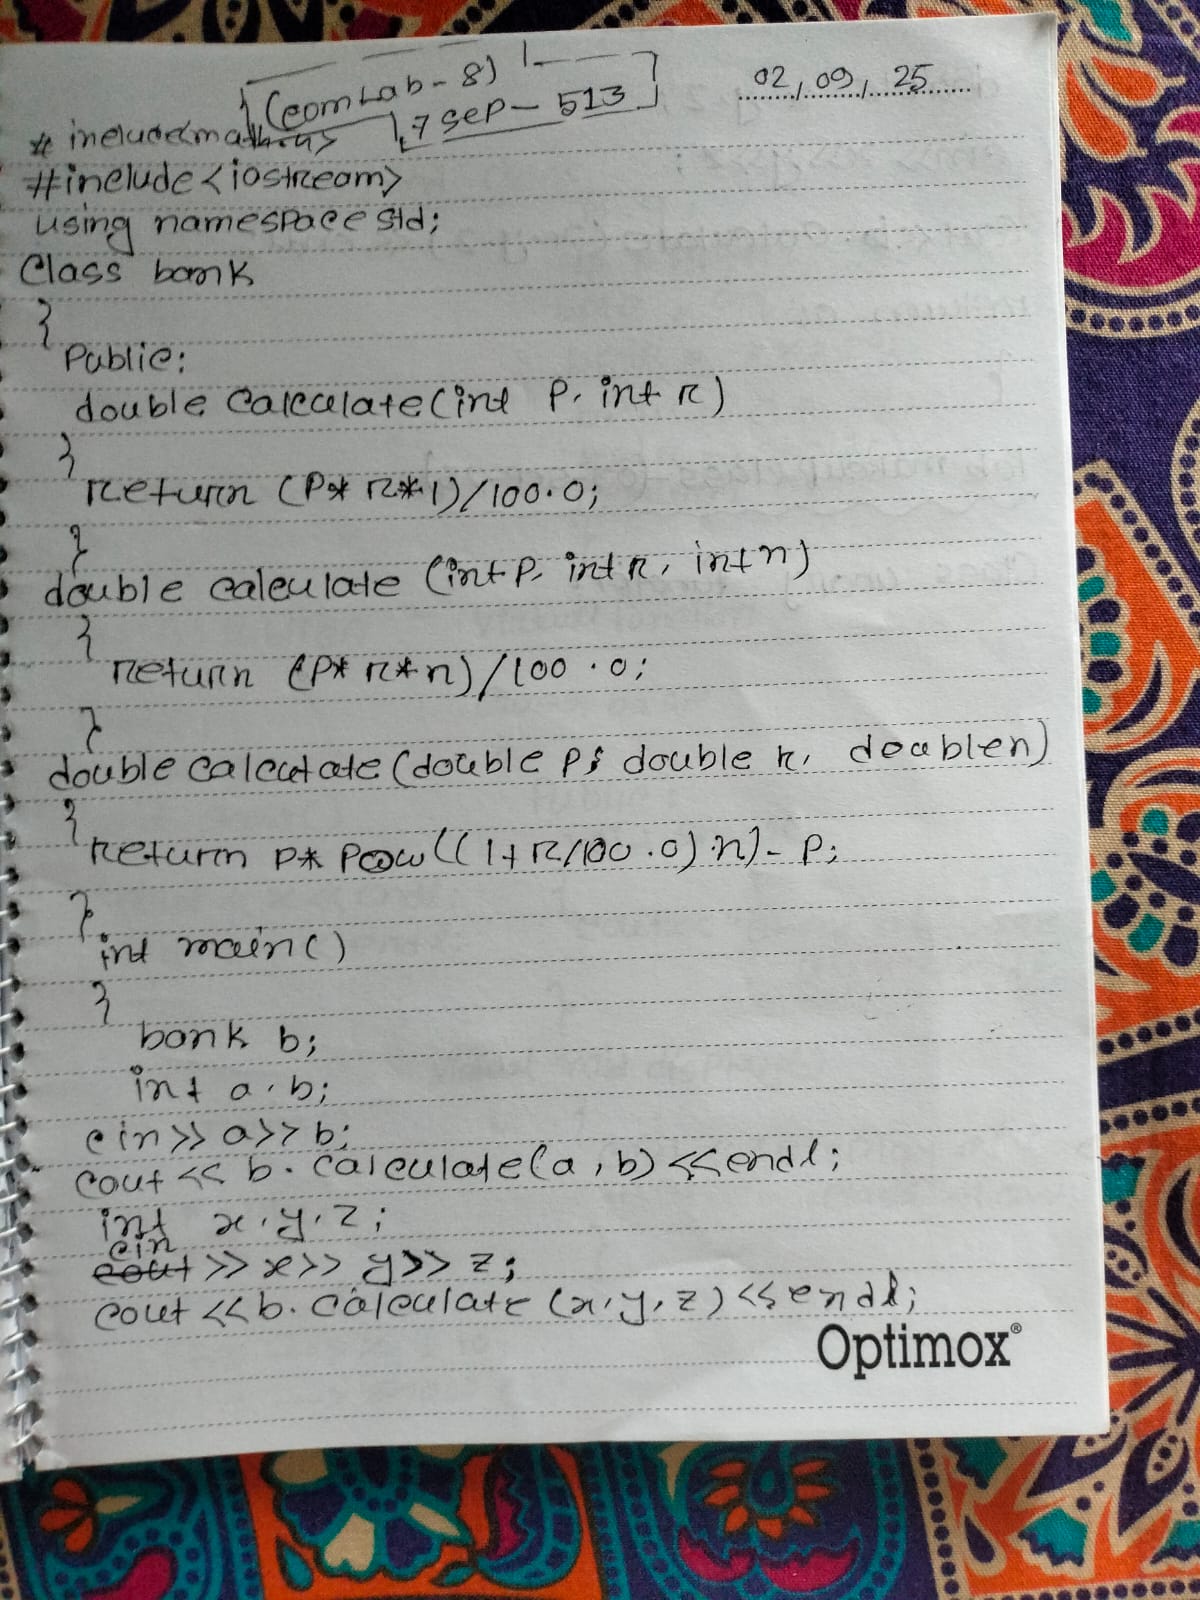 (comLab-8)
7 Sep - 513
02/09/25
#include<math.h>
#include<iostream>
using namespace std;
Class bank
{
Public:
double Calculate(int P, int r)
{
return (P* r*1)/100.0;
}
double calculate (int P, int r, int n)
{
return (P* r*n)/100.0;
}
double calculate (double P, double r, double n)
{
return P* Pow((1+r/100.0),n)-P;
}
int main()
{
bank b;
int a,b;
cin>>a>>b;
cout<<b.calculate(a,b)<<endl;
int x,y,z;
cin
cout >>x>>y>>z;
cout<<b.calculate(x,y,z)<<endl;
Optimox®